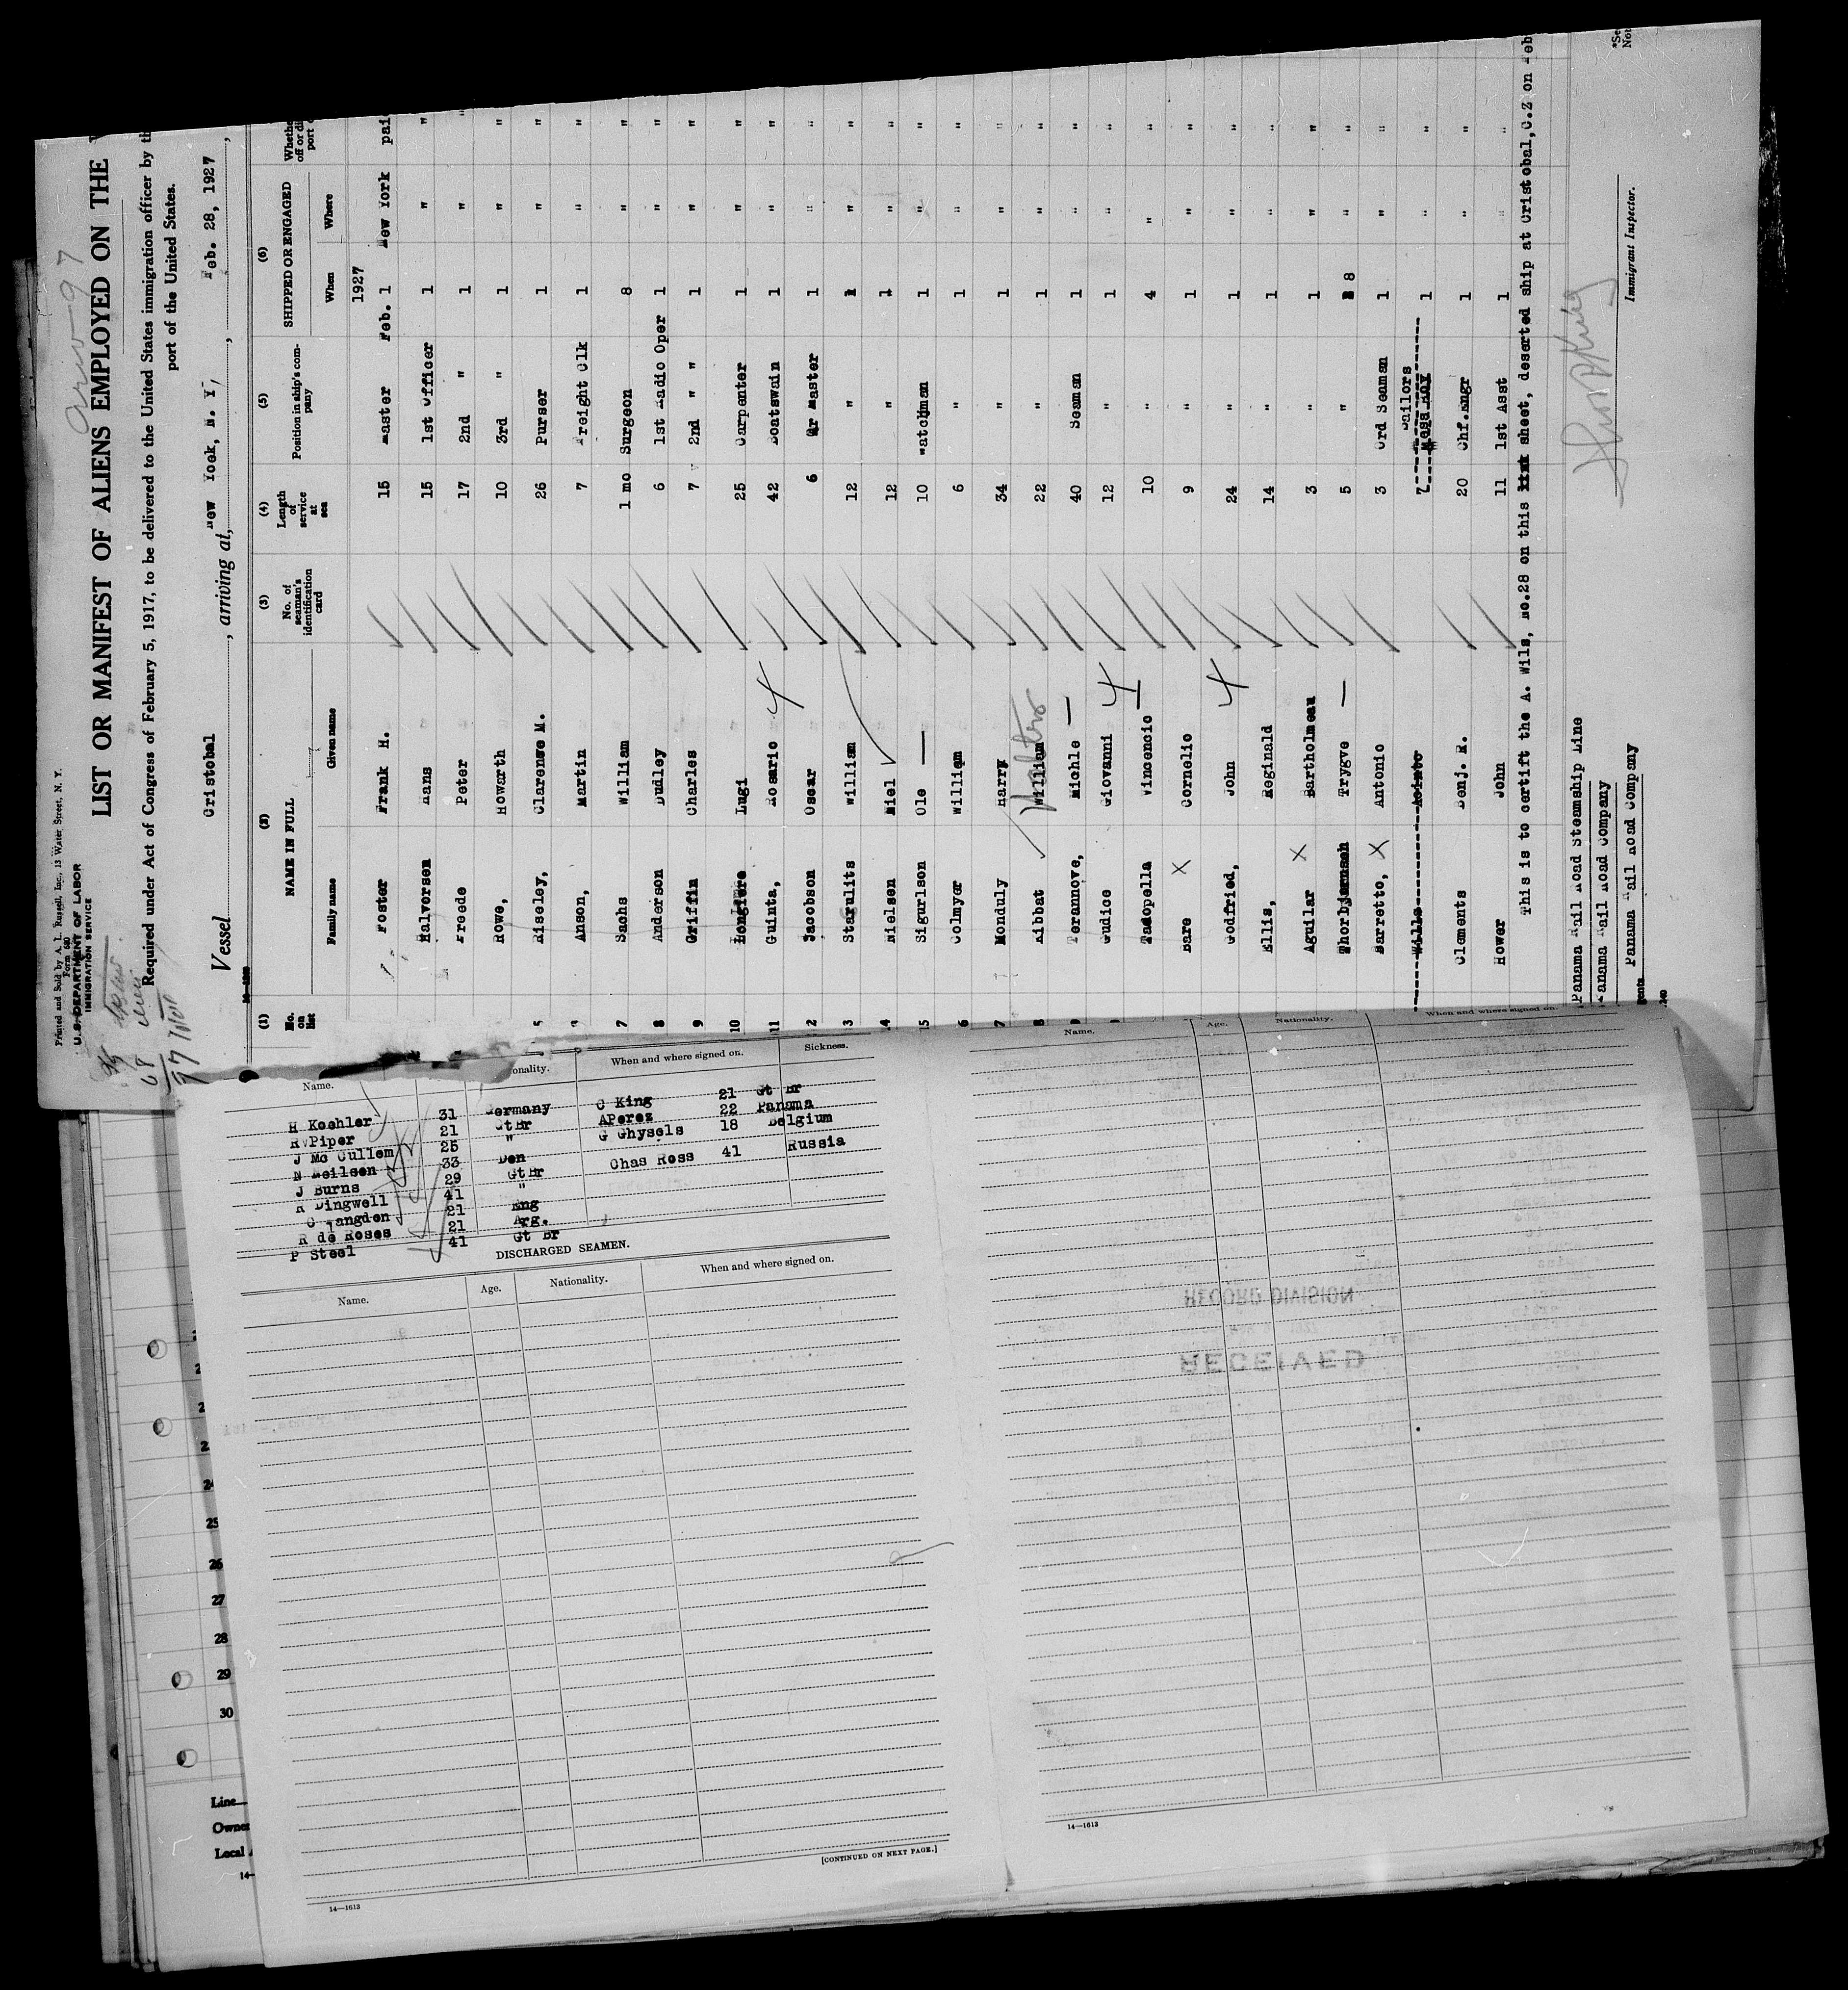 Printed and Sold by A. L. Russell, Inc., 13 Water Street, N. Y.
Form 680
U. S. DEPARTMENT OF LABOR
IMMIGRATION SERVICE
LIST OR MANIFEST OF ALIENS EMPLOYED ON THE
Required under Act of Congress of February 5, 1917, to be delivered to the United States immigration officer by th
port of the United States.
Vessel Cristobal, arriving at, New York, N. Y, Feb. 28, 1927
(1) (2) (3) (4) (5) (6)
No. on list NAME IN FULL No. of seaman's identification card Length of service at sea Position in ship's company SHIPPED OR ENGAGED
Family name Given name When Where
1927
Foster Frank H. 15 Master Feb. 1 New York pai
Halvorsen Hans 15 1st Officer 1 " "
Freede Peter 17 2nd " 1 " "
Rowe, Howarth 10 3rd " 1 " "
5 Riseley, Clarence M. 26 Purser 1 " "
Anson, Martin 7 Freight Clk 1 " "
7 Sachs William 1 mo Surgeon 8 " "
8 Anderson Dudley 6 1st Radio Oper 1 " "
9 Griffin Charles 7 2nd " " 1 " "
10 Longiere Lugi 25 Carpenter 1 " "
11 Guinta, Rosario 42 Boatswain 1 " "
2 Jacobson Oscar 6 Qr Master 1 " "
3 Starulits William 12 " 1 " "
4 Nielsen Niel 12 " 1 " "
5 Sigurlson Ole 10 Watchman 1 " "
6 Colmyer William 6 " 1 " "
7 Monduly Harry 34 " 1 " "
8 Ribat William 22 " 1 " "
9 Terannove, Michle 40 Seaman 1 " "
Gudice Giovanni 12 " 1 " "
Tacopella Vincencio 10 " 4 " "
Bare Cornelio 9 " 1 " "
Godfried, John 24 " 1 " "
Ellis, Reginald 14 " 1 " "
Aguilar Bartholmeau 3 " 1 " "
Thorbjornsen Trygve 5 " 8 " "
Barretto, Antonio 3 Ord Seaman 1 " "
Sailors
Wills Acinto 7 Mess Boy 1 " "
Clements Benj. R. 20 Chf. Engr 1 " "
Hower John 11 1st Asst 1 " "
This is to certift the A. Wils, No.28 on this sheet, deserted ship at Cristobal,C.Z on Feb
Panama Rail Road Steamship Line
Panama Rail Road Company
Panama Rail Road Company
Immigrant Inspector.
Name. onality. When and where signed on. Sickness.
H Koehler 31 Germany C King 21 Gt Br
R Piper 21 GtBr APerez 22 Panama
J Mc Cullem 25 " G Ghysels 18 Belgium
N Neilsen 33 Den Chas Ross 41 Russia
J Burns 29 GtBr
R Dingwell 41 "
C Langden 21 Eng
R de Roses 21 Arg.
P Steel 41 Gt Br
DISCHARGED SEAMEN.
Name. Age. Nationality. When and where signed on.
[CONTINUED ON NEXT PAGE.]
14—1613
Name. Age. Nationality. When and where signed on.
RECORD DIVISION
RECEIVED
14—1613
25
26
27
28
29
30
Line
Owne
Local
14—